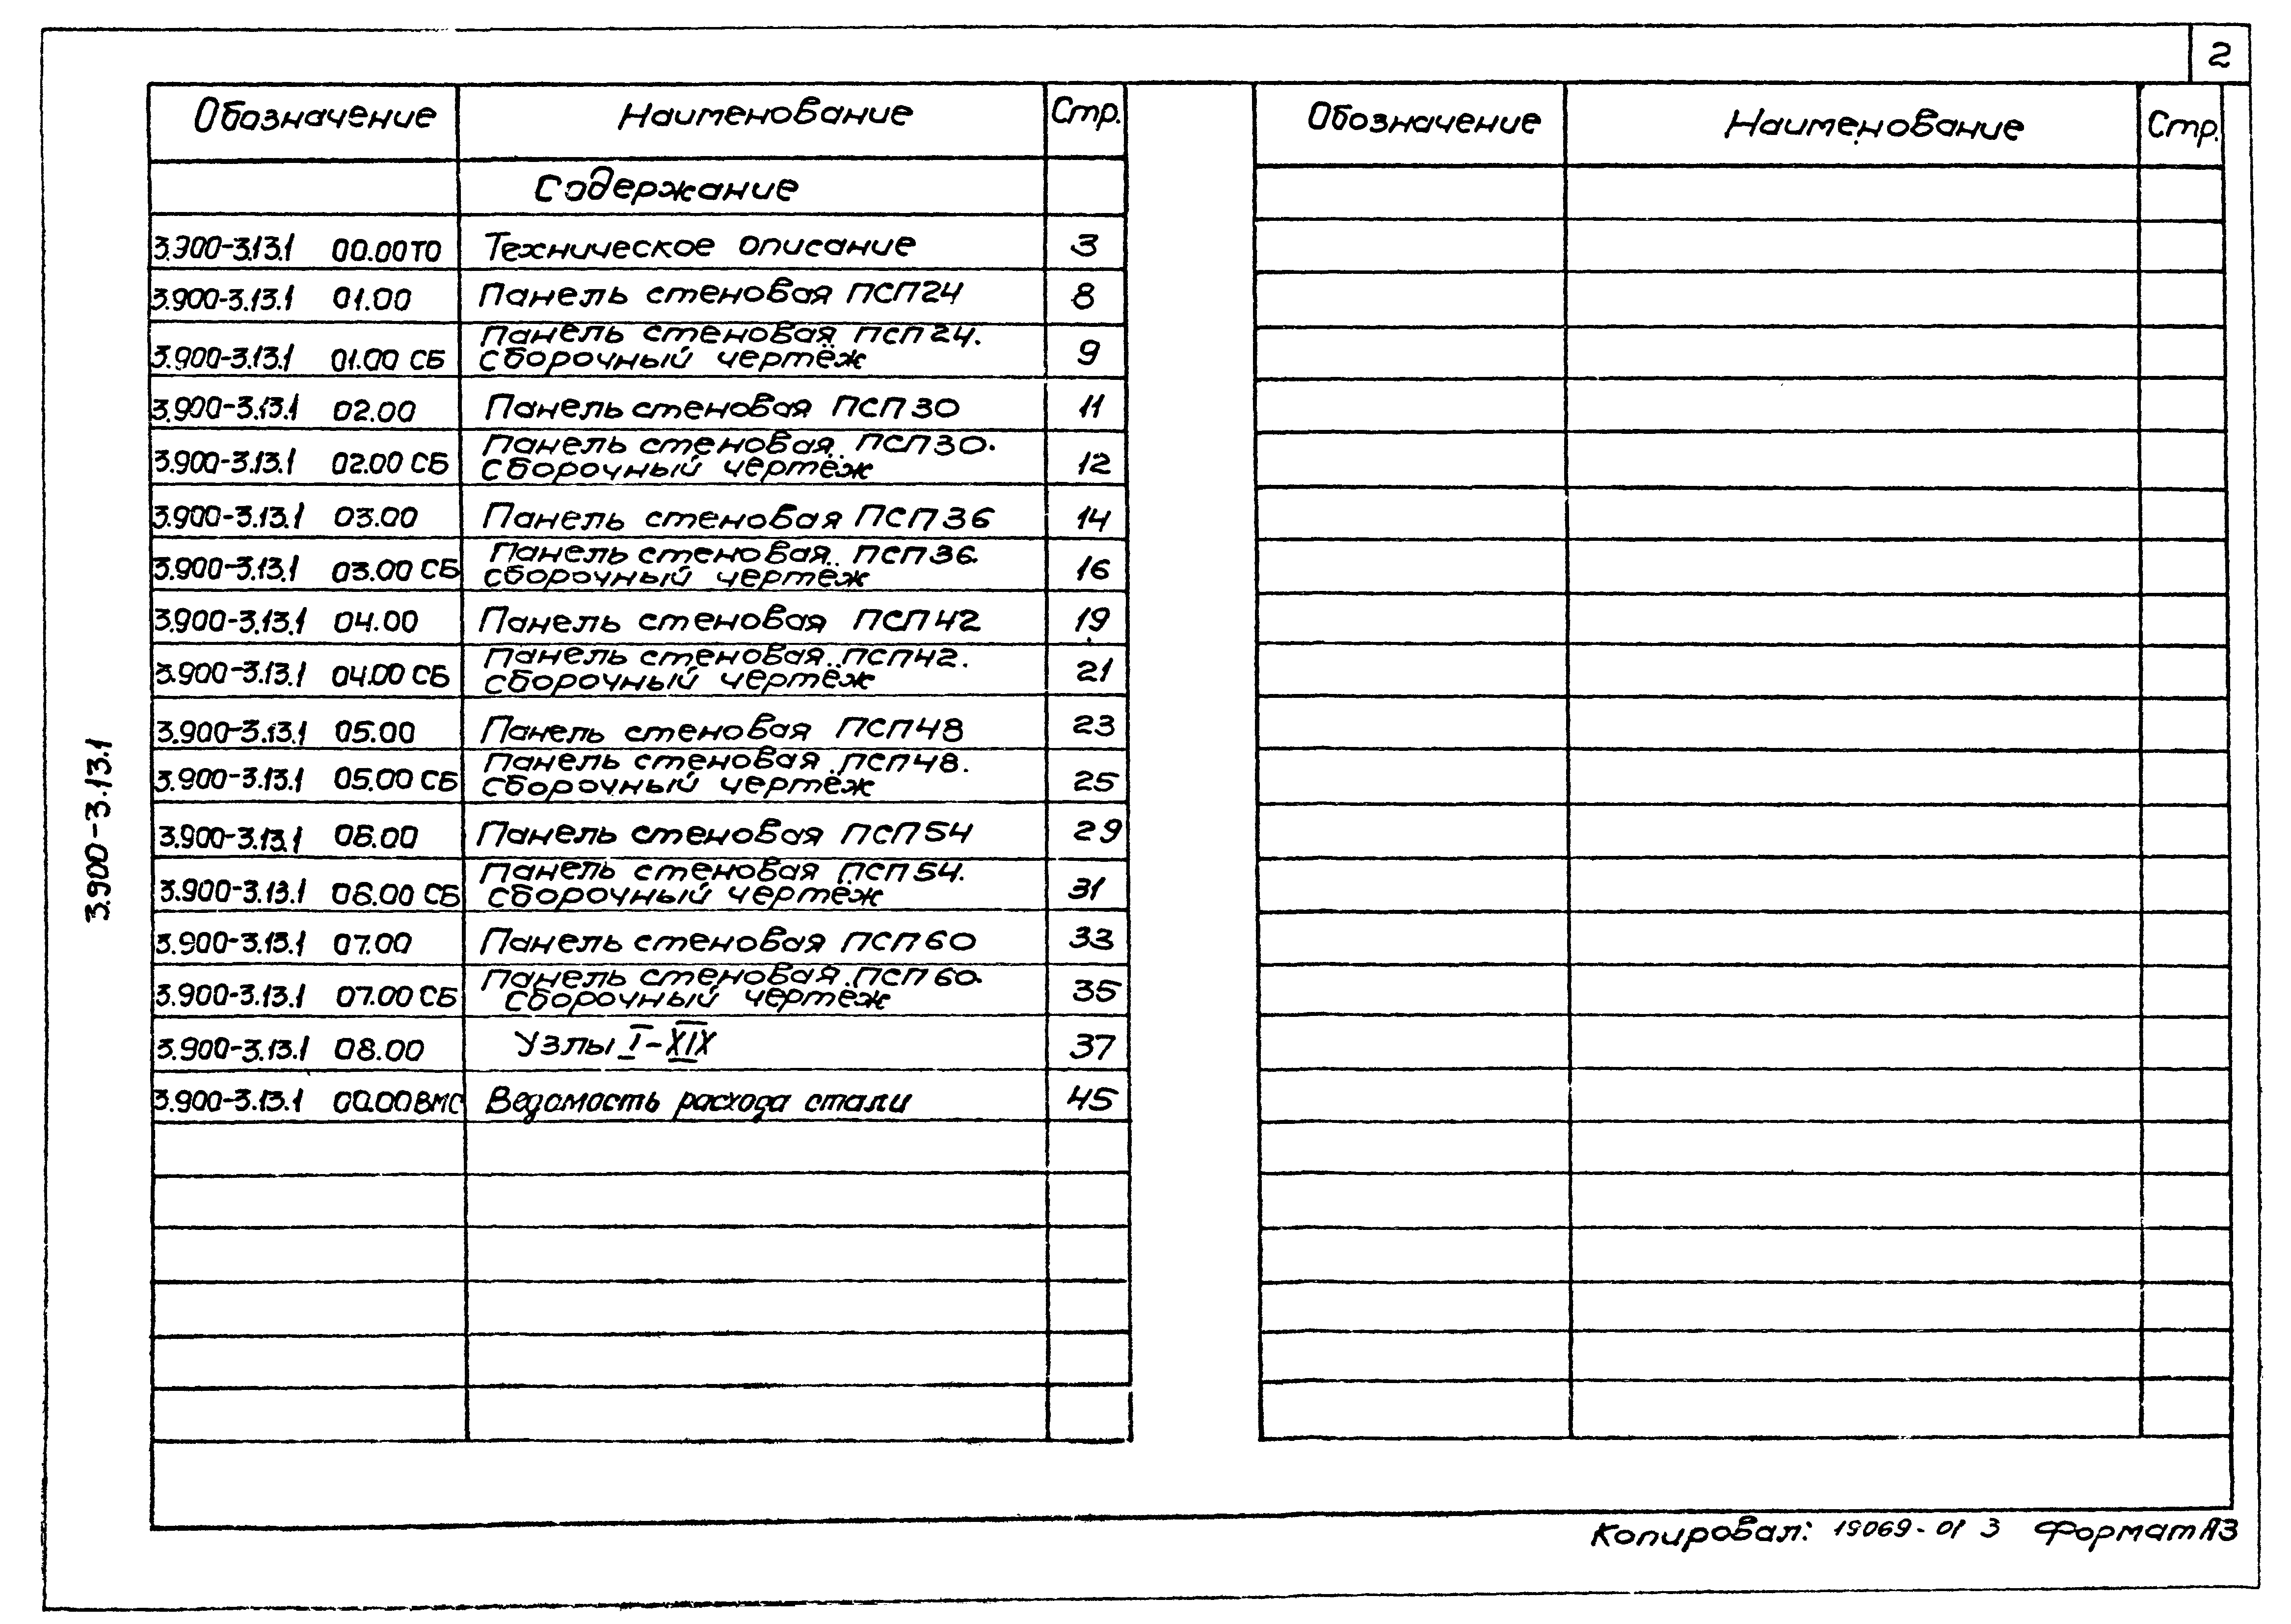 2
Обозначение Наименование Стр.
Содержание
3.900-3.13.1 00.00 ТО Техническое описание 3
3.900-3.13.1 01.00 Панель стеновая ПСП24 8
3.900-3.13.1 01.00 СБ Панель стеновая ПСП24.
Сборочный чертёж 9
3.900-3.13.1 02.00 Панель стеновая ПСП30 11
3.900-3.13.1 02.00 СБ Панель стеновая ПСП30.
Сборочный чертёж 12
3.900-3.13.1 03.00 Панель стеновая ПСП36 14
3.900-3.13.1 03.00 СБ Панель стеновая ПСП36.
Сборочный чертёж 16
3.900-3.13.1 04.00 Панель стеновая ПСП42 19
3.900-3.13.1 04.00 СБ Панель стеновая ПСП42.
Сборочный чертёж 21
3.900-3.13.1 05.00 Панель стеновая ПСП48 23
3.900-3.13.1 05.00 СБ Панель стеновая ПСП48.
Сборочный чертёж 25
3.900-3.13.1 06.00 Панель стеновая ПСП54 29
3.900-3.13.1 06.00 СБ Панель стеновая ПСП54.
Сборочный чертёж 31
3.900-3.13.1 07.00 Панель стеновая ПСП60 33
3.900-3.13.1 07.00 СБ Панель стеновая ПСП60.
Сборочный чертёж 35
3.900-3.13.1 08.00 Узлы I-XIX 37
3.900-3.13.1 00.00 ВМС Ведомость расхода стали 45
3.900-3.13.1
Обозначение Наименование Стр.
Копировал: 19069-01 3 Формат А3